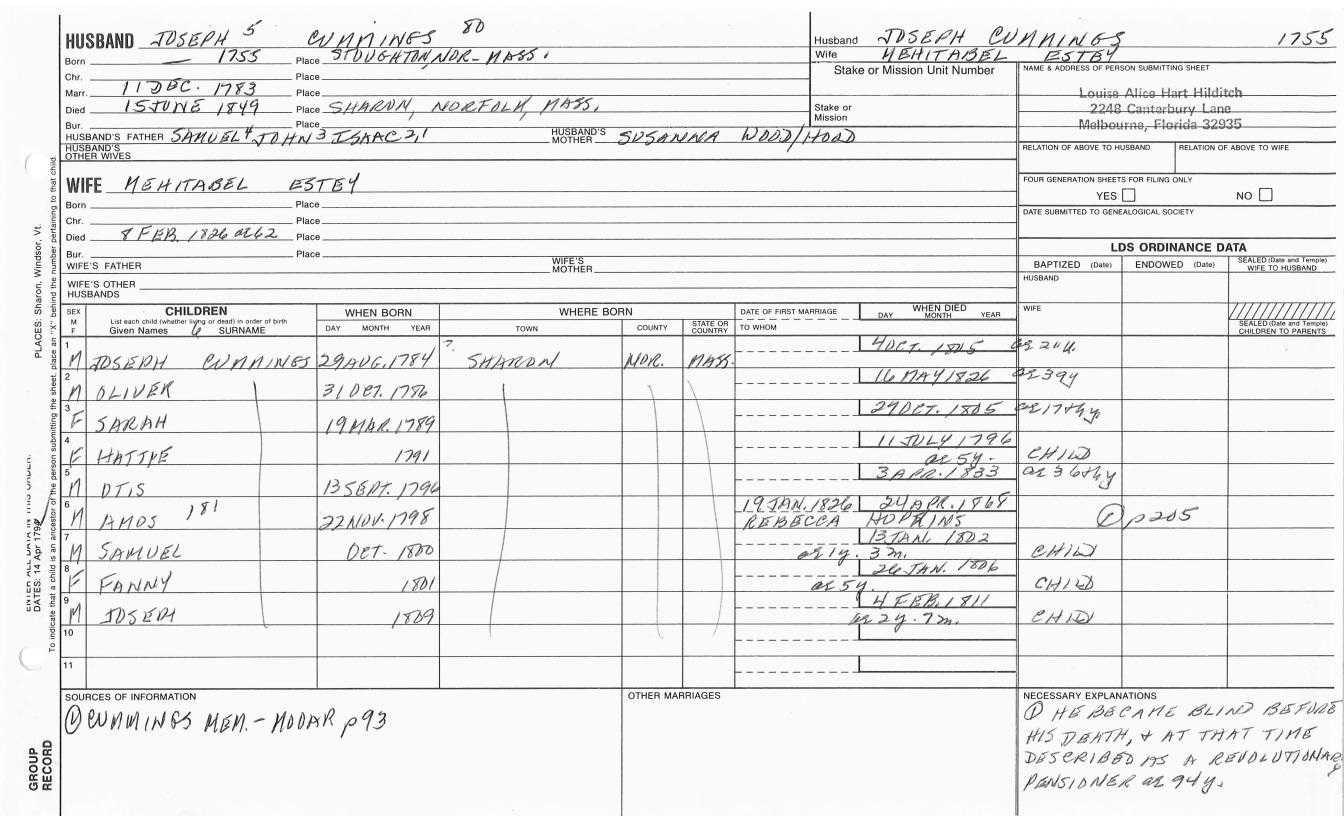 HUSBAND JOSEPH 5 CUMMINGS 80
Born — 1755 Place STOUGHTON, NOR- MASS.
Chr. Place
Marr. 11 DEC. 1783 Place
Died 15 JUNE 1849 Place SHARON, NORFOLK, MASS.
Bur. Place
HUSBAND'S FATHER SAMUEL 4 JOHN 3 ISAAC 2,1 HUSBAND'S MOTHER SUSANNA WOOD/HOOD
HUSBAND'S OTHER WIVES
Husband JOSEPH CUMMINGS 1755
Wife MEHITABEL ESTEY
Stake or Mission Unit Number
Stake or Mission
NAME & ADDRESS OF PERSON SUBMITTING SHEET
Louise Alice Hart Hilditch
2248 Canterbury Lane
Melbourne, Florida 32935
RELATION OF ABOVE TO HUSBAND RELATION OF ABOVE TO WIFE
FOUR GENERATION SHEETS FOR FILING ONLY
YES NO
DATE SUBMITTED TO GENEALOGICAL SOCIETY
WIFE MEHITABEL ESTEY
Born Place
Chr. Place
Died 8 FEB. 1826 ae 62 Place
Bur. Place
WIFE'S FATHER WIFE'S MOTHER
WIFE'S OTHER HUSBANDS
LDS ORDINANCE DATA
BAPTIZED (Date) ENDOWED (Date) SEALED (Date and Temple) WIFE TO HUSBAND
HUSBAND
WIFE
SEALED (Date and Temple) CHILDREN TO PARENTS
SEX M F
CHILDREN
List each child (whether living or dead) in order of birth
Given Names 6 SURNAME
WHEN BORN
DAY MONTH YEAR
WHERE BORN
TOWN COUNTY STATE OR COUNTRY
DATE OF FIRST MARRIAGE
TO WHOM
WHEN DIED
DAY MONTH YEAR
1 M JOSEPH CUMMINGS 29 AUG. 1784 ? SHARON NOR. MASS. 4 OCT. 1805 ae 21y.
2 M OLIVER 31 OCT. 1786 16 MAY 1826 ae 39y
3 F SARAH 19 MAR. 1789 29 OCT. 1805 ae 17th y
4 F HATTIE 1791 11 JULY 1796 ae 5y. CHILD
5 M OTIS 13 SEPT. 1796 3 APR. 1833 ae 36th y
6 M AMOS 181 22 NOV. 1798 19 JAN. 1826 24 APR. 1868
REBECCA HOPKINS ① p205
7 M SAMUEL OCT- 1800 13 JAN. 1802
ae 1y. 3m. CHILD
8 F FANNY 1801 26 JAN. 1806
ae 5y CHILD
9 M JOSEPH 1809 4 FEB. 1811
ae 2y. 7m. CHILD
10
11
SOURCES OF INFORMATION
① CUMMINGS MEM. - MODAR p93
OTHER MARRIAGES
NECESSARY EXPLANATIONS
① HE BECAME BLIND BEFORE
HIS DEATH, & AT THAT TIME
DESCRIBED AS A REVOLUTIONARY
PENSIONER ae 94y.
PLACES: Sharon, Windsor, Vt.
ENTER ALL DATA IN THIS ORDER:
DATES: 14 Apr 1792
To indicate that a child is an ancestor of the person submitting the sheet, place an "X" behind the number pertaining to that child.
GROUP RECORD